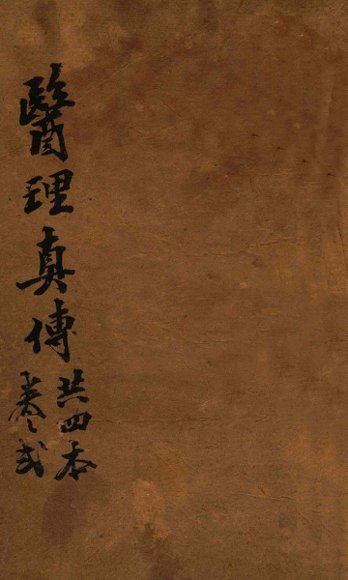 醫理真傳
共四本
卷之弍